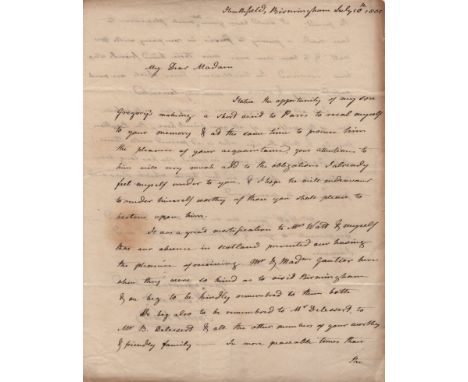 Heathfield, Birmingham July 10th 180
My Dear Madam
I take the opportunity of my son
Gregory's making a short visit to Paris to recal myself
to your memory & at the same time to procure him
the pleasure of your acquaintance, your attentions to
him will very much add to the obligations I already
feel myself under to you, & I hope he will endeavour
to render himself worthy of those you shall please to
bestow upon him.
It was a great mortification to Mrs Watt & myself
that our absence in Scotland prevented our having
the pleasure of receiving Mr & Madm Gautier here
when they were so kind as to visit Birmingham
& we beg to be kindly remembered to them both
We beg also to be remembered to Mr Delessert, to
Mr B. Delessert & all the other members of your worthy
& friendly family — In more peaceable times than
the